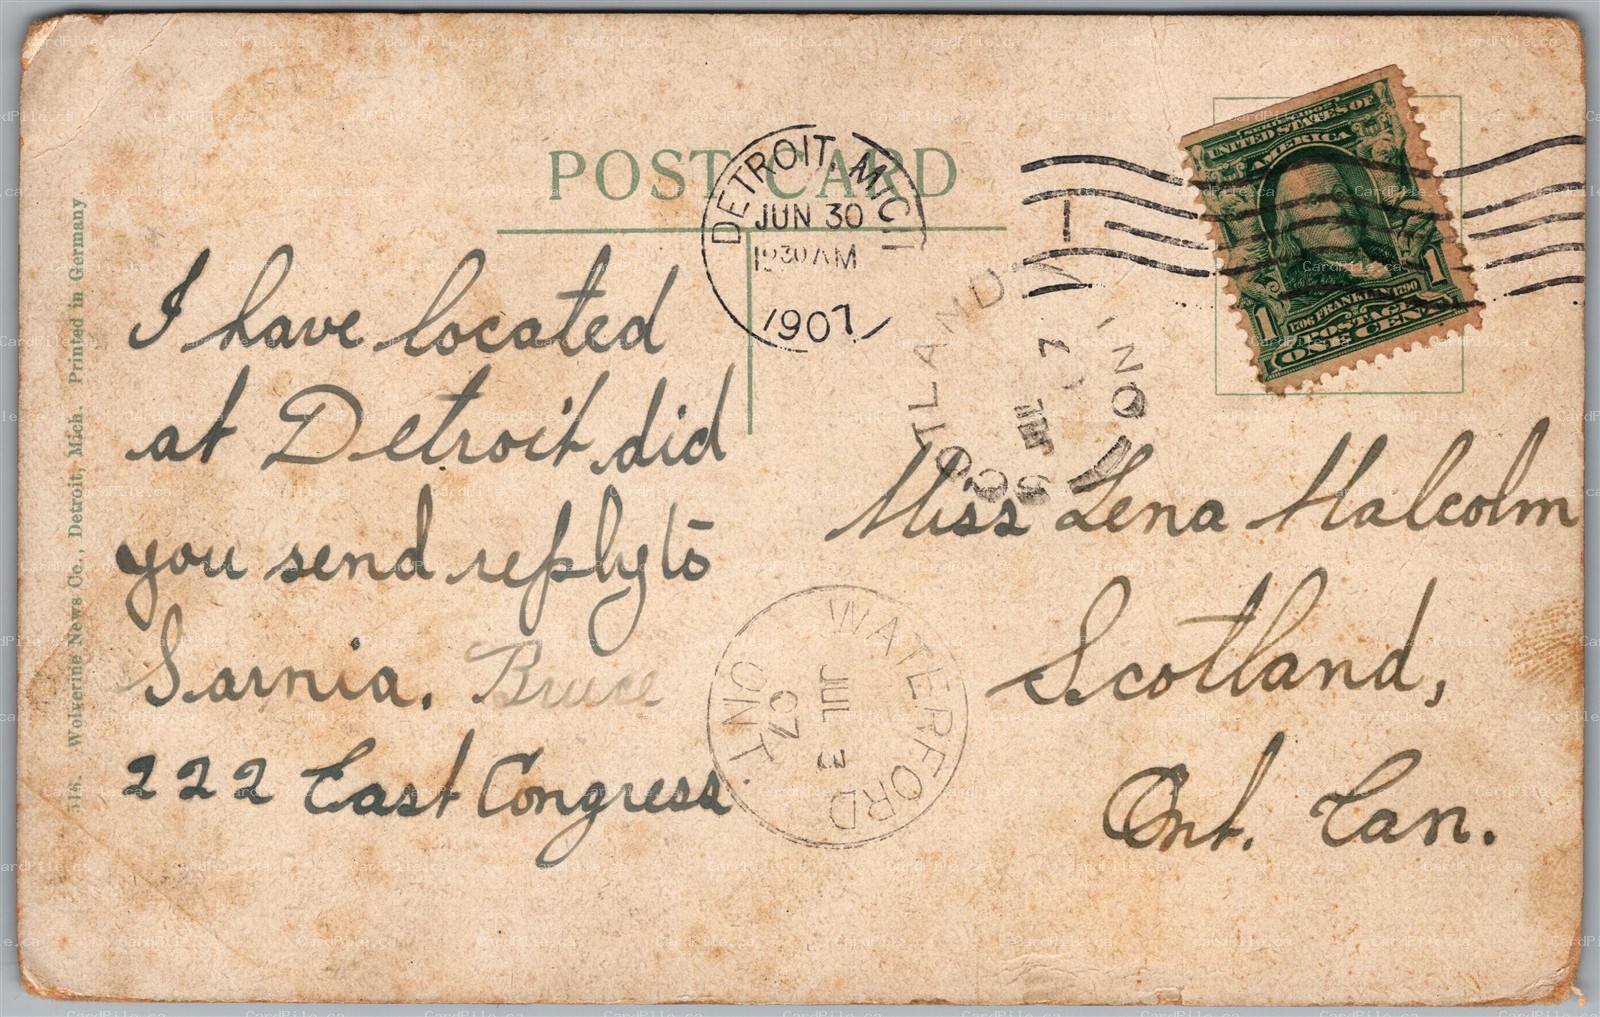 POST CARD
DETROIT, MICH
JUN 30
1230 AM
1907
SERIES 1902
UNITED STATES OF
AMERICA
1706 FRANKLIN 1790
POSTAGE
1 1
ONE CENT
SCOTLAND
JUL
07
ONT
I have located
at Detroit did
you send reply to
Sarnia. Bruce
222 East Congress
Miss Lena Malcolm
Scotland,
Ont. Can.
WATERFORD
JUL 3
07
ONT.
Wolverine News Co., Detroit, Mich. Printed in Germany.
CardPile.ca